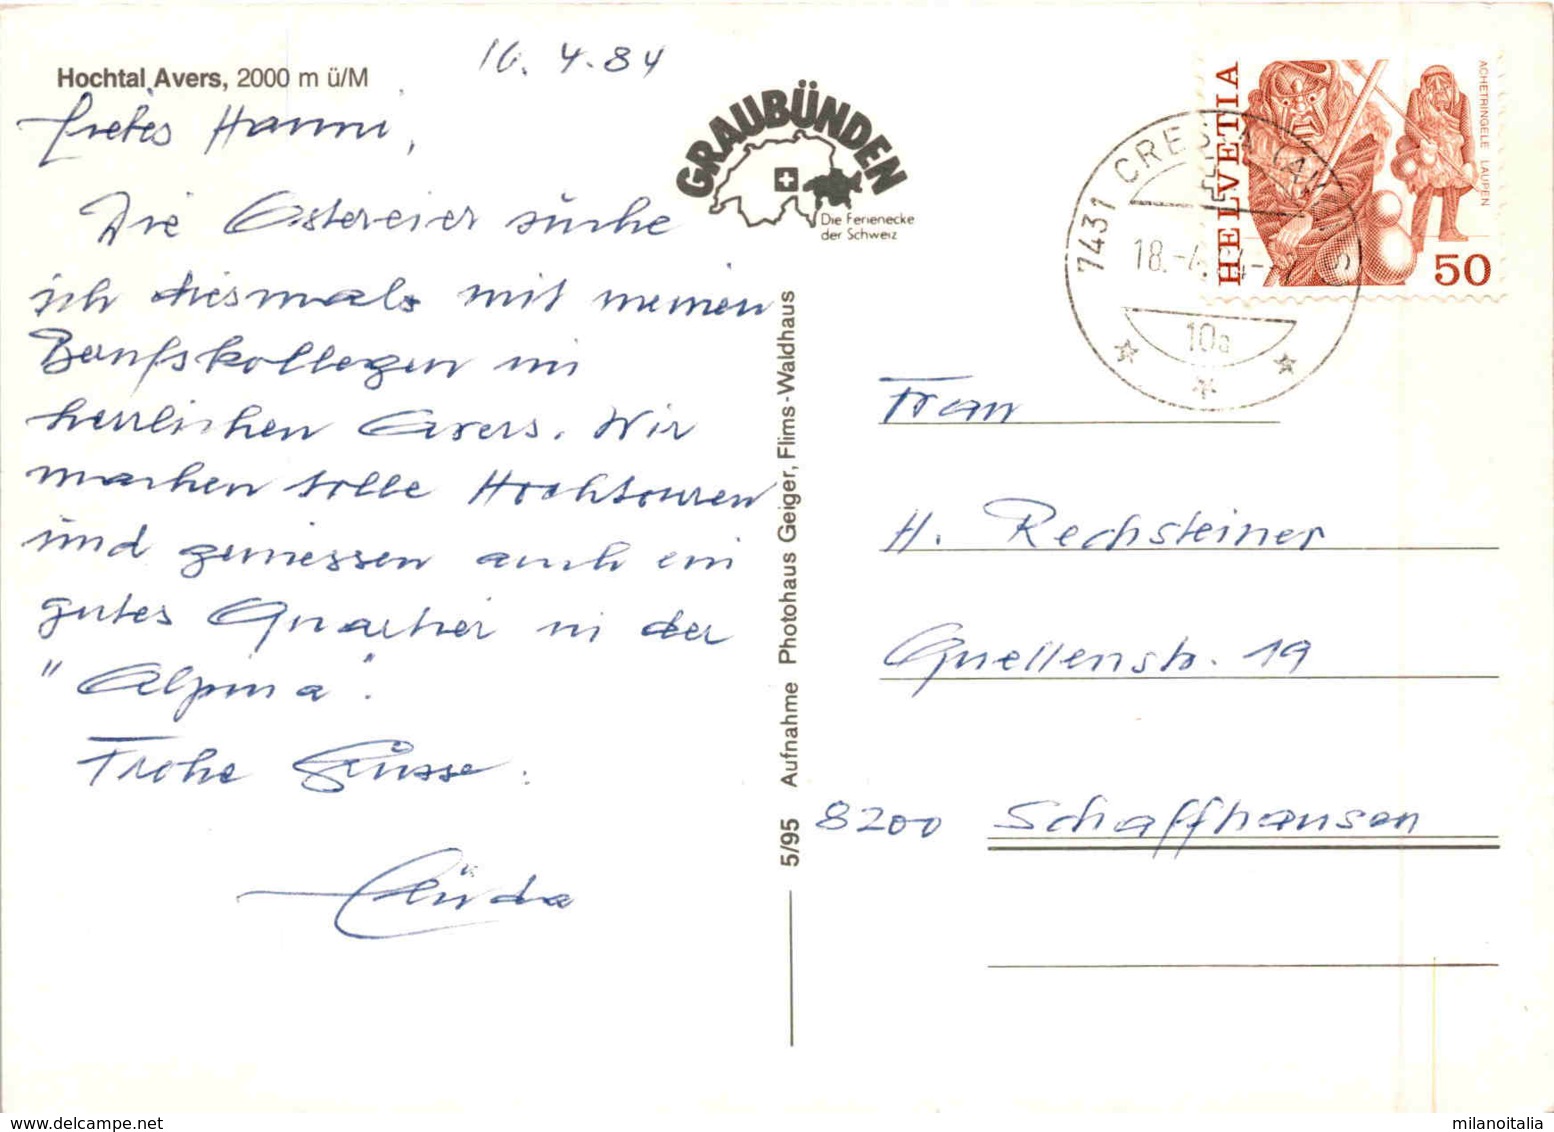 Hochtal Avers, 2000 m ü/M
16. 4. 84
Liebes Hanni,
Die Ostereier suche
ich diesmal mit meinen
Berufskollegen im
herrlichen Avers. Wir
machen tolle Hochtouren
und geniessen auch ein
gutes Quartier in der
"Alpina".
Frohe Grüsse:
GRAUBÜNDEN
Die Ferienecke
der Schweiz
5/95 Aufnahme Photohaus Geiger, Flims-Waldhaus
HELVETIA
ACHETRINGELE LAUPEN
50
7431 CRESTA (AVERS)
18.-4.84-
10a
Frau
H. Rechsteiner
Quellenstr. 19
8200 Schaffhausen
www.delcampe.net
milanoitalia